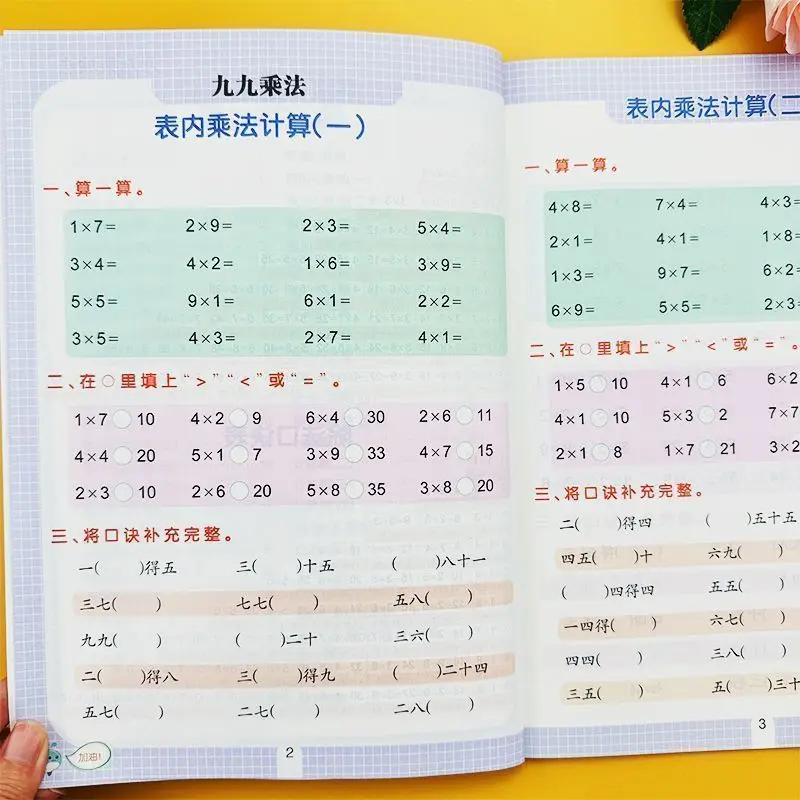 九九乘法
表内乘法计算(一)
一、算一算。
1×7= 2×9= 2×3= 5×4=
3×4= 4×2= 1×6= 3×9=
5×5= 9×1= 6×1= 2×2=
3×5= 4×3= 2×7= 4×1=
二、在○里填上“>”“<”或“=”。
1×7○10 4×2○9 6×4○30 2×6○11
4×4○20 5×1○7 3×9○33 4×7○15
2×3○10 2×6○20 5×8○35 3×8○20
三、将口诀补充完整。
一( )得五 三( )十五 ( )八十一
三七( ) 七七( ) 五八( )
九九( ) ( )二十 三六( )
二( )得八 三( )得九 ( )二十四
五七( ) 二七( ) 二八( )
加油!
2
表内乘法计算(二
一、算一算。
4×8= 7×4= 4×3=
2×1= 4×1= 1×8=
1×3= 9×7= 6×2=
6×9= 5×5= 2×3=
二、在○里填上“>”“<”或“=”。
1×5○10 4×1○6 6×2
4×1○10 5×3○2 7×7
2×1○8 1×7○21 3×2
三、将口诀补充完整。
二( )得四 ( )五十五
四五( )十 六九( )
( )四得四 五五( )
一四得( ) 六七( )
四四( ) 三八( )
三五( ) 五( )三十
3